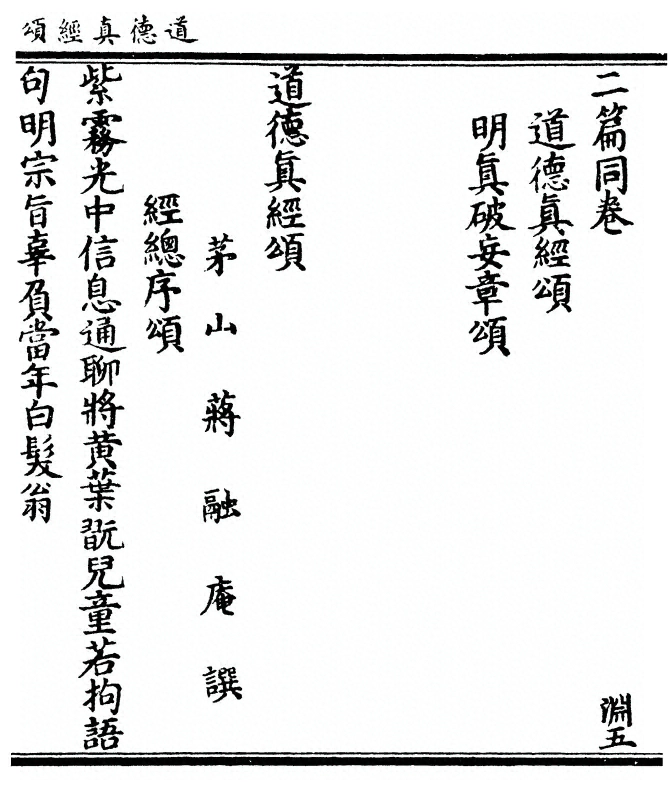 道德真經頌
二篇同卷　淵五
道德眞經頌
明眞破妄章頌
道德眞經頌
茅山蔣融庵譔
經總序頌
紫霧光中信息通聊將黄葉翫兒童若拘語
句明宗旨辜負當年白髮翁